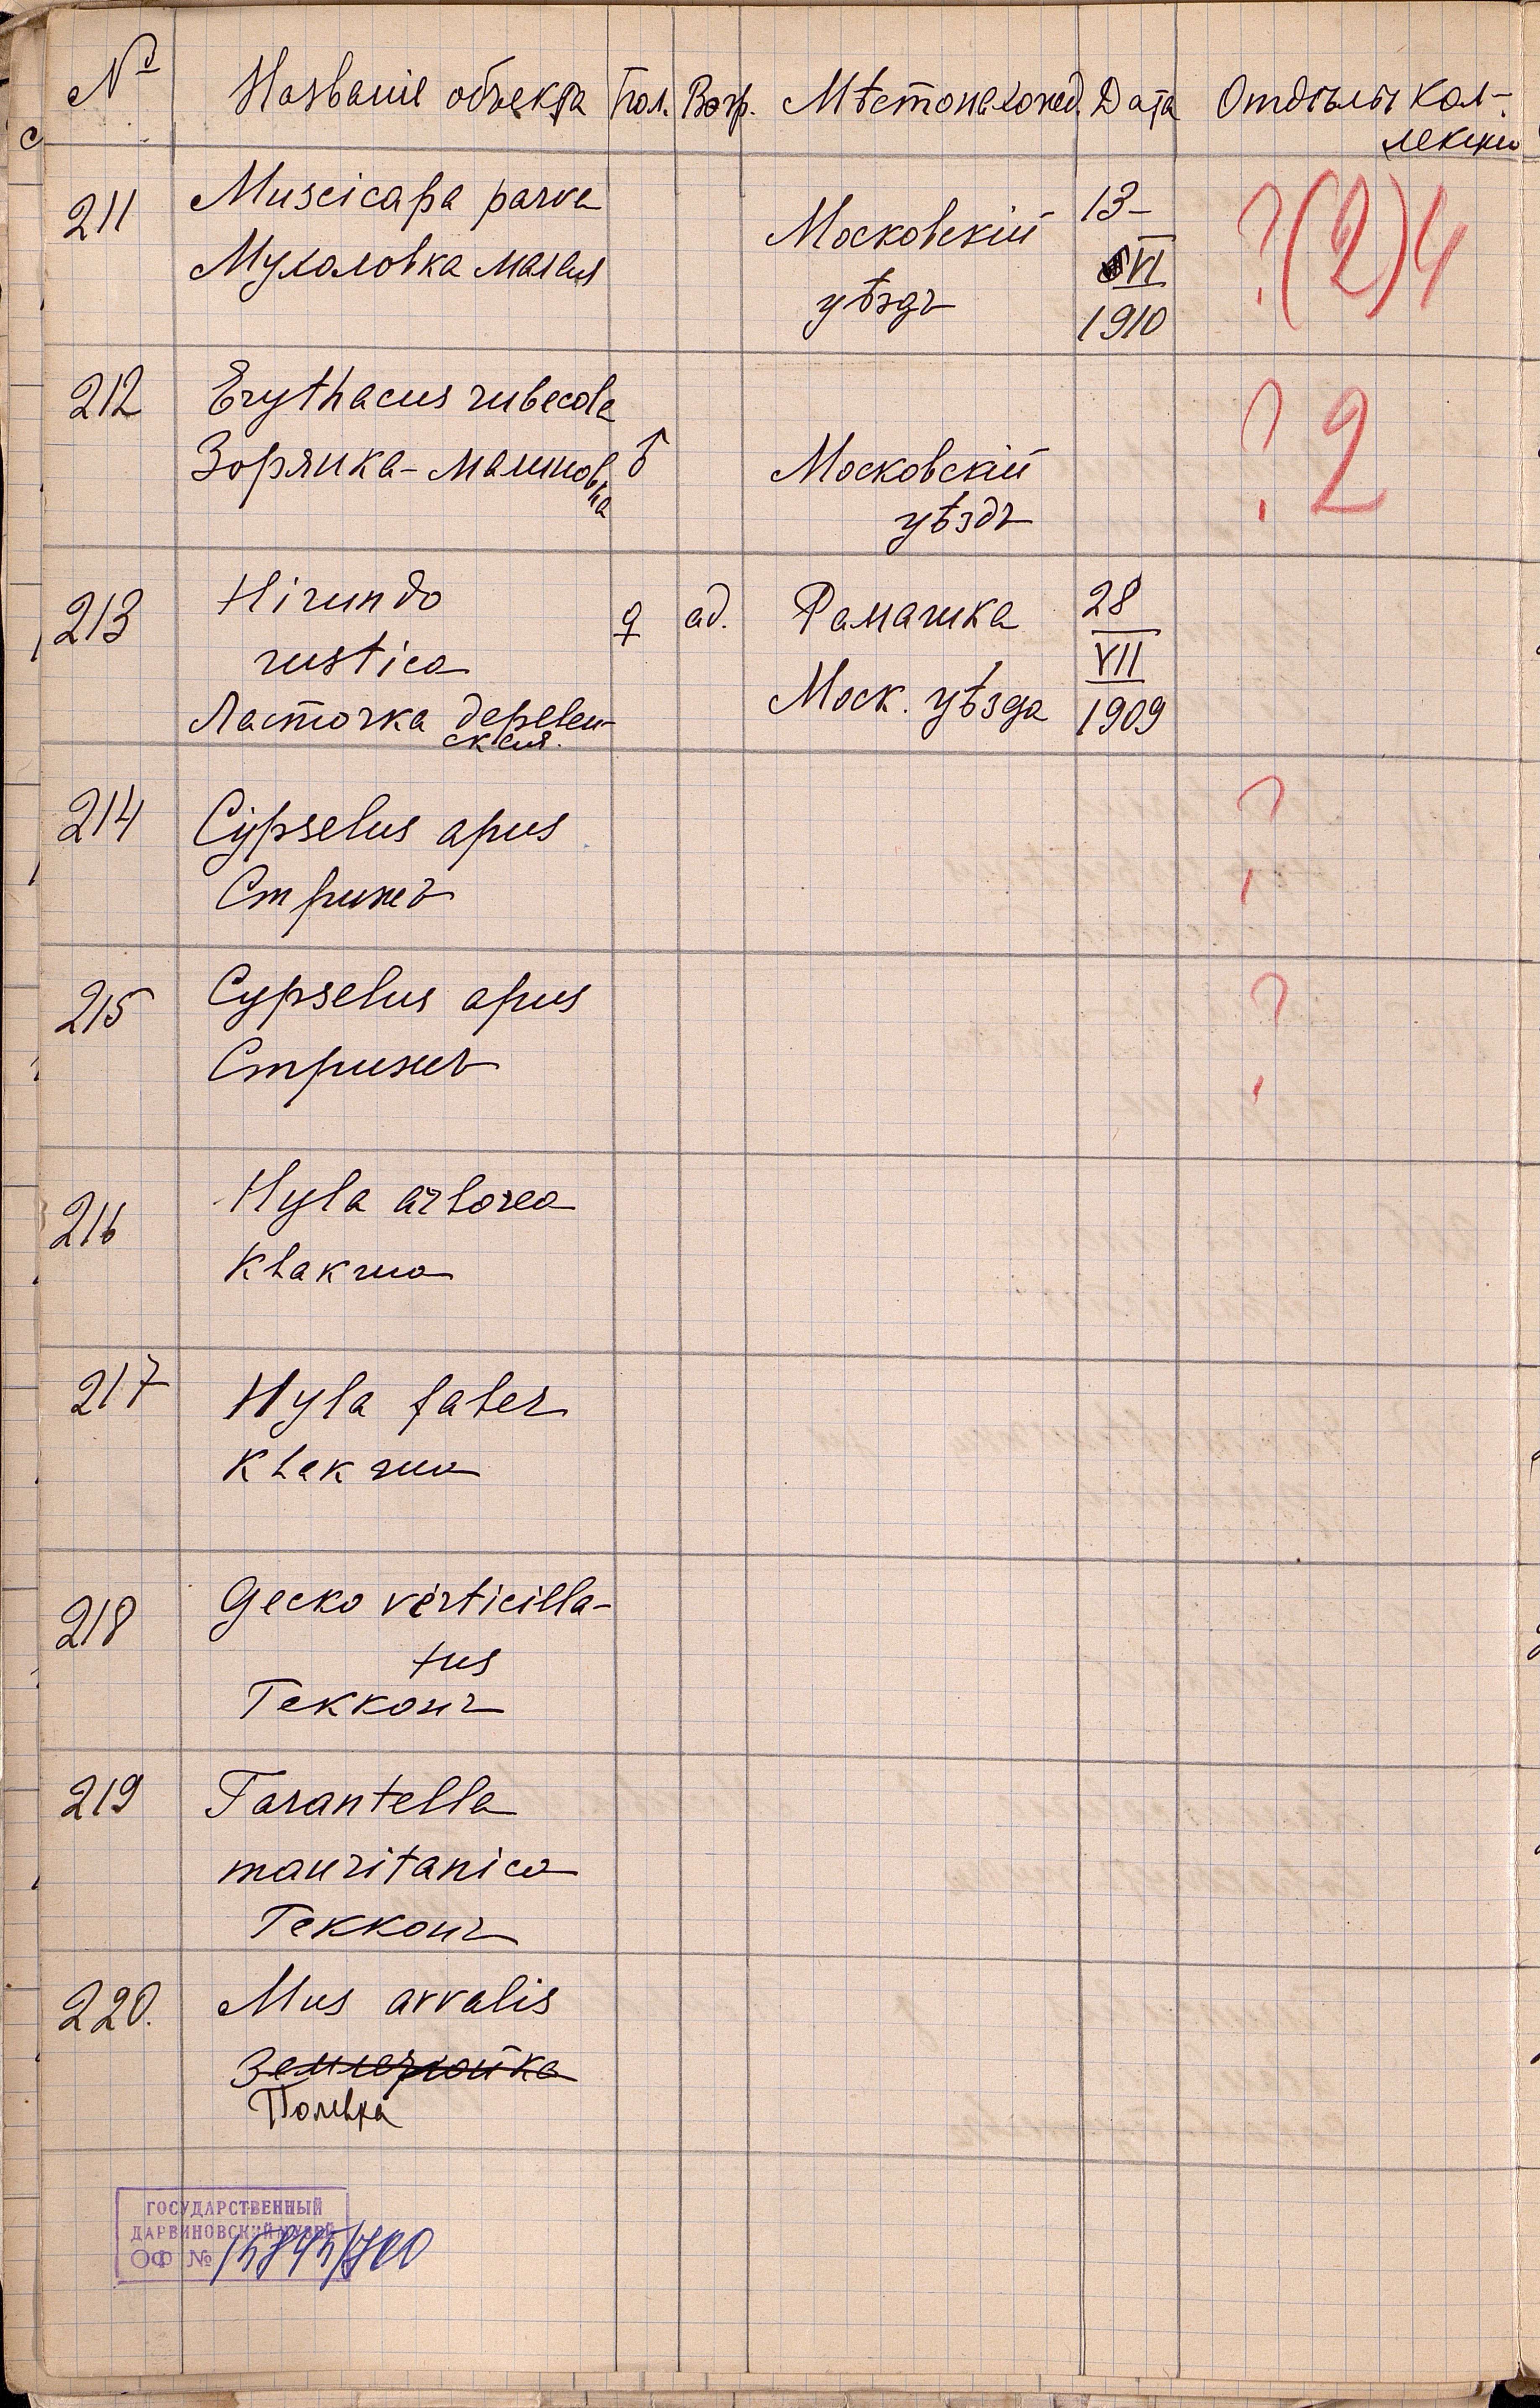 № Названіе объекта Пол. Возр. Мѣстонахожд. Дата Отдѣлы кол-
лекціи
211 Muscicapa parva
Мухоловка малая
Московскій
уѣздъ
13-
VI
1910
?(2)4
212 Erythacus rubecola
Зорянка-малинов
ка
♂
Московскій
уѣздъ
? 2
213 Hirundo
rustica
Ласточка деревен-
ская.
♀ ad.
Моск. уѣзда
28
VII
1909
214 Cypselus apus
Стрижъ
?
215 Cypselus apus
Стрижъ
?
216 Hyla arborea
Квакша
217 Hyla faber
Квакша
218 Gecko verticilla-
tus
Гекконъ
219 Tarantella
mauritanica
Гекконъ
220. Mus arvalis
Землеройка
Полевка
ГОСУДАРСТВЕННЫЙ
ДАРВИНОВСКИЙ МУЗЕЙ
ОФ №